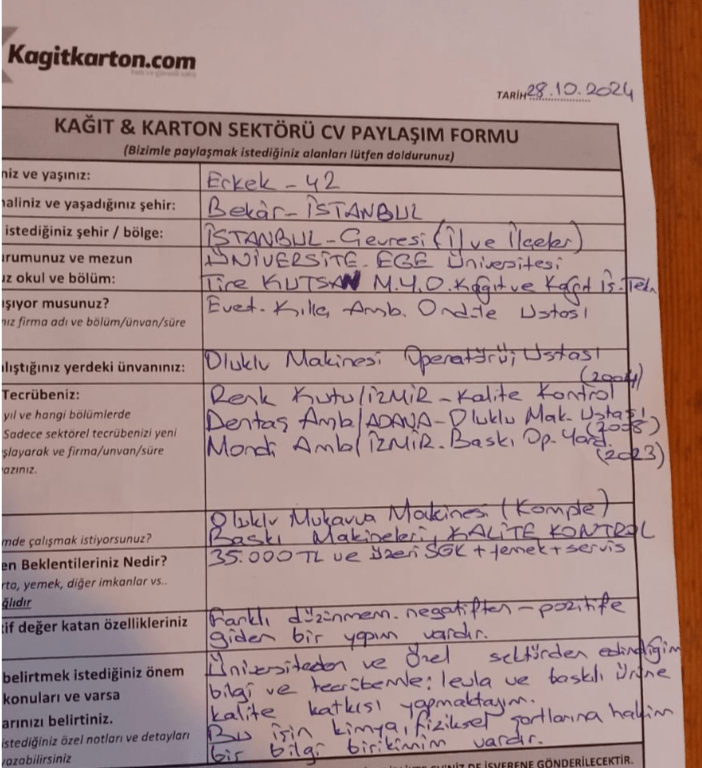 Kagitkarton.com
TARİH 28.10.2024
KAĞIT & KARTON SEKTÖRÜ CV PAYLAŞIM FORMU
(Bizimle paylaşmak istediğiniz alanları lütfen doldurunuz)
niz ve yaşınız: Erkek - 42
haliniz ve yaşadığınız şehir: Bekâr - İSTANBUL
istediğiniz şehir / bölge: İSTANBUL - Çevresi (İl ve İlçeler)
urumunuz ve mezun ÜNİVERSİTE - EGE Üniversitesi
uz okul ve bölüm: Tire KUTSAN M.Y.O. Kağıt ve Kağıt İş. Tekn
ışıyor musunuz? Evet. Amb. Ondüle Ustası
nız firma adı ve bölüm/ünvan/süre
alıştığınız yerdeki ünvanınız: Oluklu Makinesi Operatörü; Ustası
(2004)
Tecrübeniz: Renk Kutu/İZMİR - Kalite Kontrol
yıl ve hangi bölümlerde Dentaş Amb/ADANA - Oluklu Mak. Ustası
(2008)
Sadece sektörel tecrübenizi yeni Mondi Amb/İZMİR. Baskı Op. Yard.
şlayarak ve firma/unvan/süre (2023)
azınız.
Oluklu Mukavva Makinesi (Komple)
mde çalışmak istiyorsunuz? Baskı Makineleri, KALİTE KONTROL
en Beklentileriniz Nedir? 35.000 TL ve Üzeri SGK + Yemek + servis
rta, yemek, diğer imkanlar vs..
ğlıdır
tif değer katan özellikleriniz Farklı düşünmem. negatiften - pozitife
giden bir yapım vardır.
Üniversiteden ve Özel sektörden edindiğim
belirtmek istediğiniz önem bilgi ve tecrübemle; levla ve baskılı ürüne
konuları ve varsa kalite katkısı yapmaktayım.
arınızı belirtiniz. Bu işin kimya, fiziksel şartlarına hakim
istediğiniz özel notları ve detayları bir bilgi birikimim vardır.
yazabilirsiniz
DE İŞVERENE GÖNDERİLECEKTİR.